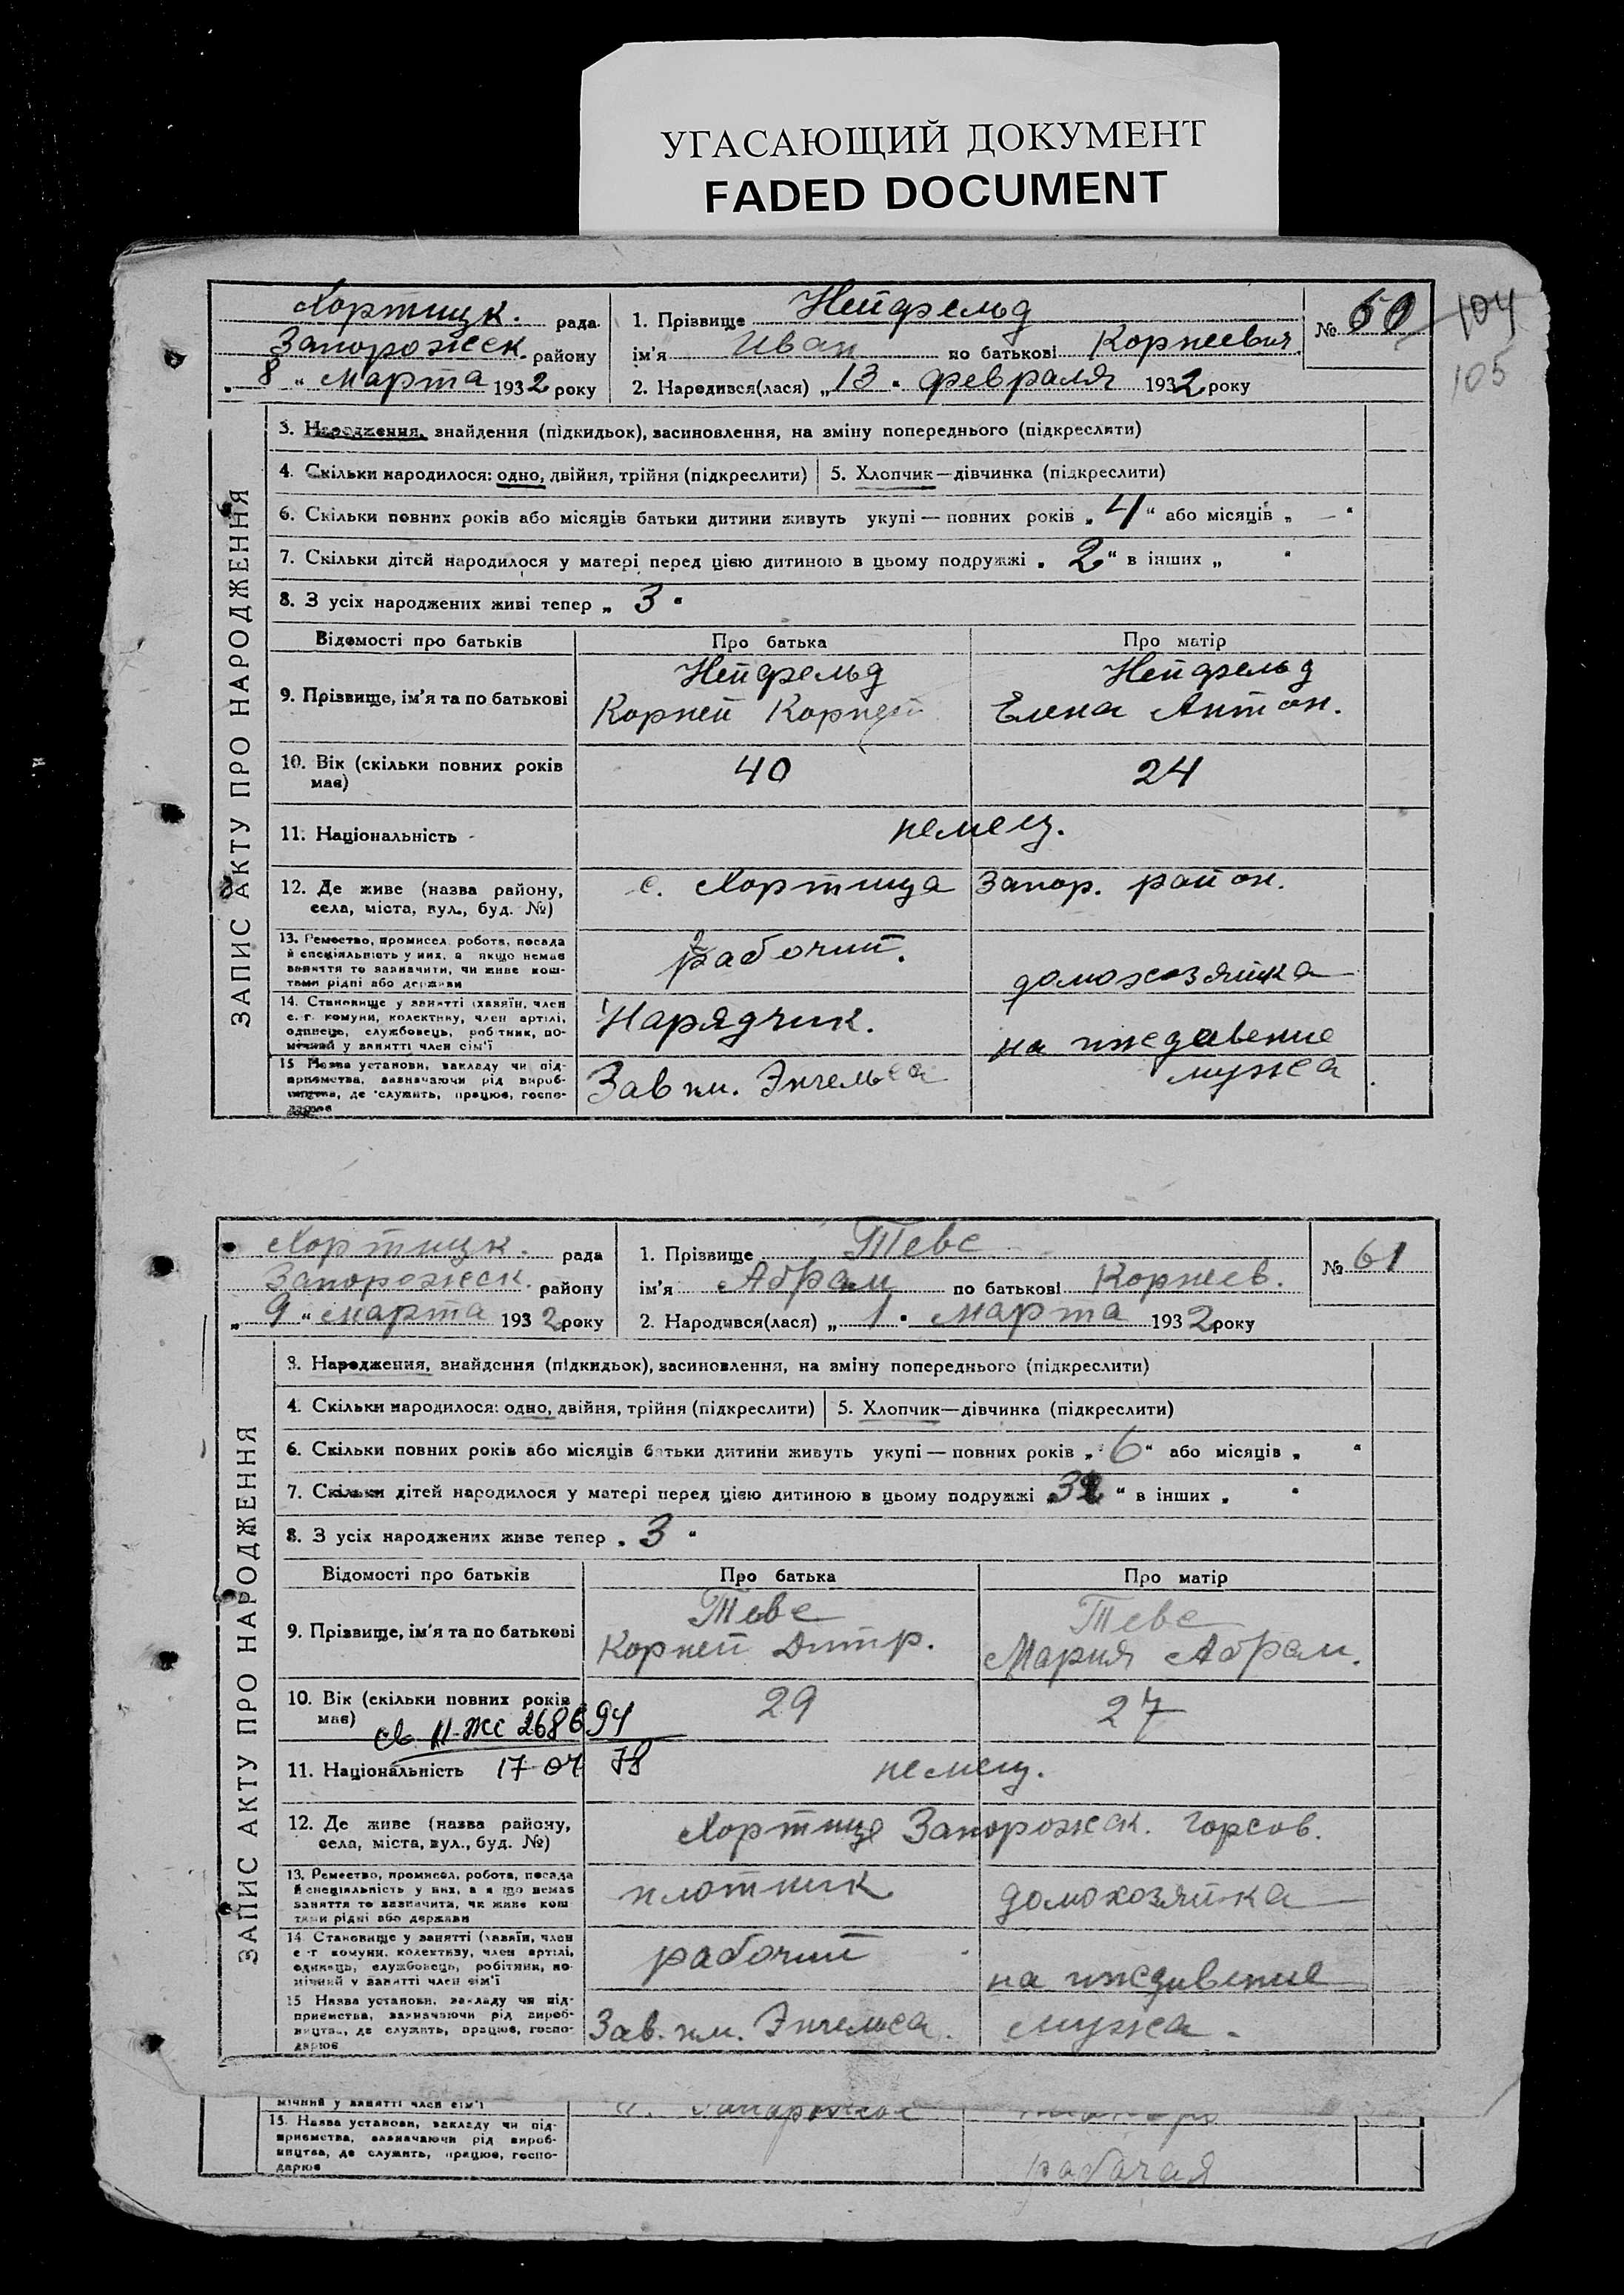 УГАСАЮЩИЙ ДОКУМЕНТ
FADED DOCUMENT
104
105
Хортицк. рада
Запорожск. району
„ 8 " Марта 1932 року
1. Прізвище Нейфельд
ім'я Иван по батькові Корнеевич.
2. Народився(лася) „ 13 " февраля 1932 року
№ 60
ЗАПИС АКТУ ПРО НАРОДЖЕННЯ
3. Народження, знайдення (підкидьок), засиновлення, на зміну попереднього (підкреслити)
4. Скільки народилося: одно, двійня, трійня (підкреслити) 5. Хлопчик—дівчинка (підкреслити)
6. Скільки повних років або місяців батьки дитини живуть укупі — повних років „ 4 " або місяців „ — "
7. Скільки дітей народилося у матері перед цією дитиною в цьому подружжі „ 2 " в інших „ "
8. З усіх народжених живі тепер „ 3 "
Відомості про батьків Про батька Про матір
9. Прізвище, ім'я та по батькові
Нейфельд
Корней Корней
Нейфельд
Елена Антон.
10. Вік (скільки повних років має)
40 24
11. Національність немец.
12. Де живе (назва району,
села, міста, вул., буд. №)
с. Хортица Запор. район.
13. Ремество, промисел, робота, посада
й спеціяльність у них, а якщо немає
заняття то зазначити, чи живе кош-
тами рідні або держави
рабочий. домохозяйка
14. Становище у занятті (хазяїн, член
с.-г. комуни, колективу, член артілі,
одинець, службовець, робітник, по-
мічний у занятті член сім'ї
Нарядчик. на иждевение
мужа
15 Назва установи, закладу чи під-
приємства, зазначаючи рід вироб-
ництва, де служить, працює, госпо-
дарює
Зав им. Энгельса
Хортицк. рада
Запорожск. району
„ 9 " марта 1932 року
1. Прізвище Теве
ім'я Абрам по батькові Корнеев.
2. Народився(лася) „ 1 " марта 1932 року
№ 61
ЗАПИС АКТУ ПРО НАРОДЖЕННЯ
3. Народження, знайдення (підкидьок), засиновлення, на зміну попереднього (підкреслити)
4. Скільки народилося: одно, двійня, трійня (підкреслити) 5. Хлопчик—дівчинка (підкреслити)
6. Скільки повних років або місяців батьки дитини живуть укупі — повних років „ 6 " або місяців „ "
7. Скільки дітей народилося у матері перед цією дитиною в цьому подружжі „ 2 " в інших „ "
8. З усіх народжених живе тепер „ 3 "
Відомості про батьків Про батька Про матір
9. Прізвище, ім'я та по батькові
Теве
Корней Дитр.
Теве
Мария Абрам.
10. Вік (скільки повних років
має)
29 27
св. II-ЖС 268694
17 04 78
11. Національність немец.
12. Де живе (назва району,
села, міста, вул., буд. №)
Хортице Запорожск. горсов.
13. Ремество, промисел, робота, посада
й спеціяльність у них, а якщо немає
заняття то зазначити, чи живе кош
тами рідні або держави
плотник домохозяйка
14. Становище у занятті (хазяїн, член
с-г комуни, колективу, член артілі,
одинець, службовець, робітник, по
мічний у занятті член сім'ї
рабочий на иждивение
мужа.
15 Назва установи, закладу чи під-
приємства, зазначаючи рід вироб-
ництва, де служить, працює, госпо-
дарює
Зав. им. Энгельса.
мічний у занятті член сім'ї
15. Назва установи, закладу чи під-
приємства, зазначаючи рід вироб-
ництва, де служить, працює, госпо-
дарює
рабочая